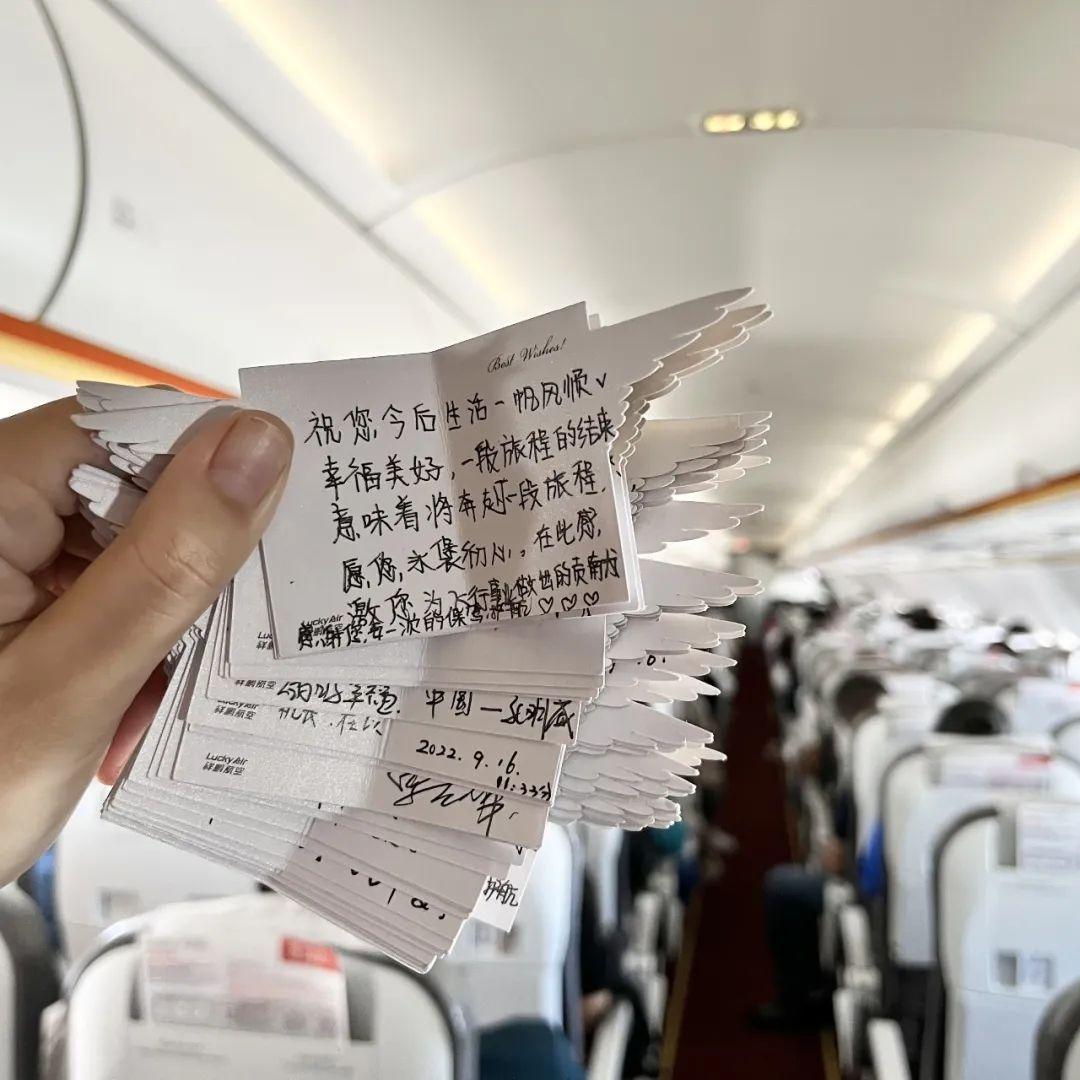 Best Wishes!
祝您今后生活一帆风顺
幸福美好,一段旅程的结束
意味着将奔赴下一段旅程.
愿您,永葆初心。在此,感
激您为飞行事业做出的贡献
感谢您每一次的保驾护航♡♡♡
Lucky Air
祥鹏航空
Lucky
祥鹏航空
中国—
祥鹏航空
2022.9.16.
11:33分
Lucky Air
祥鹏航空
护航